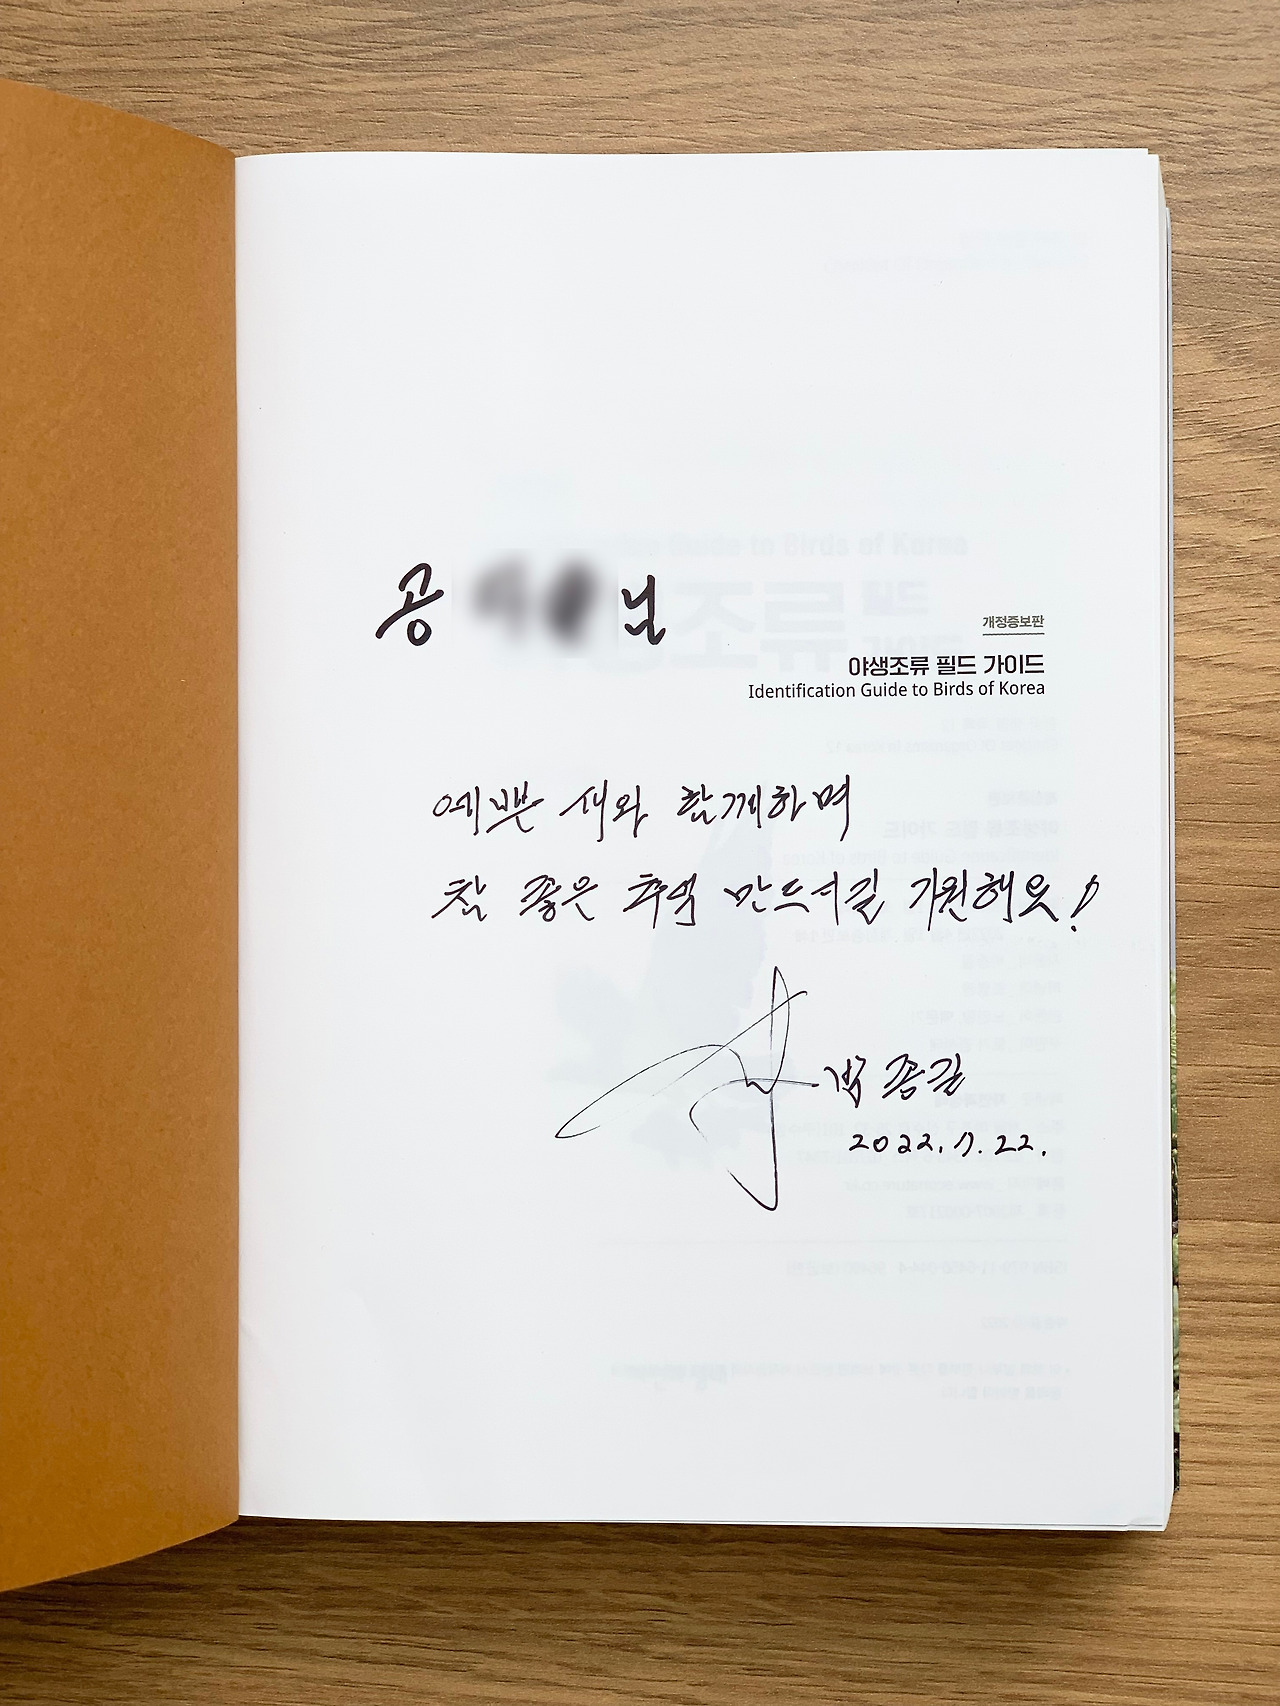 공 님
개정증보판
야생조류 필드 가이드
Identification Guide to Birds of Korea
예쁜 새와 함께하며
참 좋은 추억 만드시길 기원해요!
박종길
2022. 7. 22.